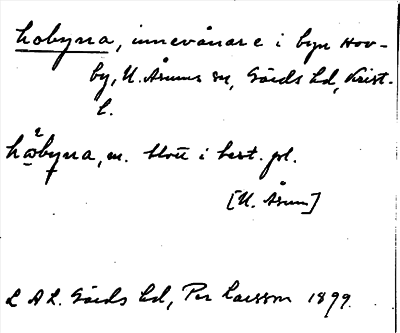 hobyna, innevånare i byn Hov-
by, N. Åsums sn, Gärds hd, Krist.
l.
hωbyna, m. blott i best. pl.
[N. Åsum]
L A L. Gärds hd, Per Larsson 1899.